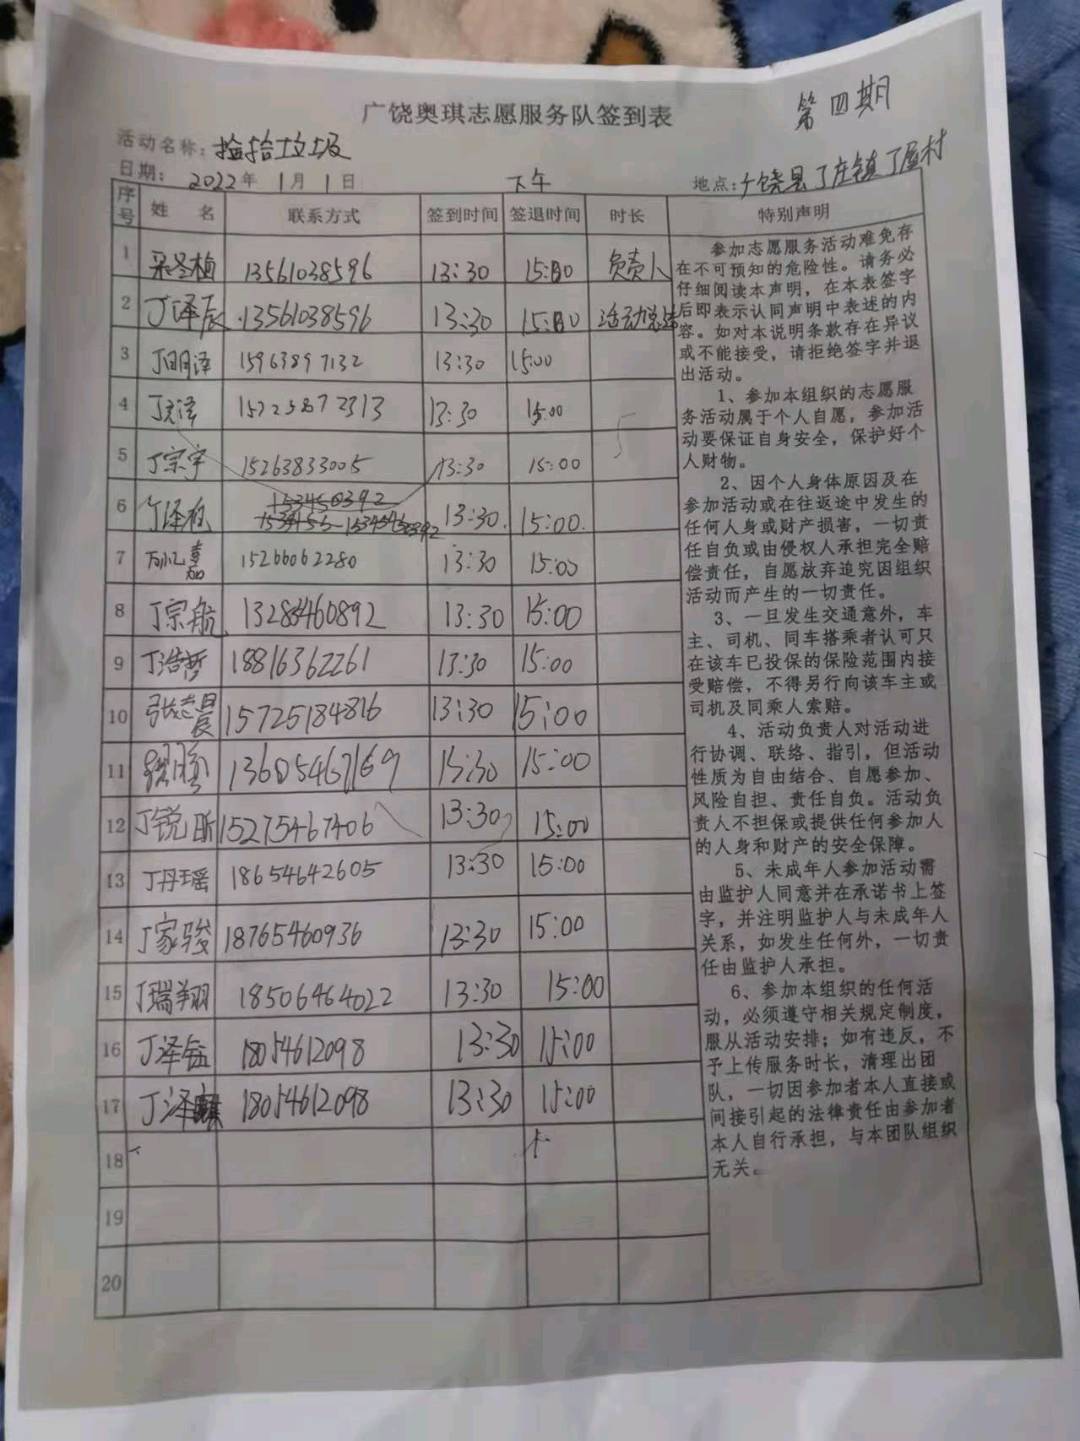 第四期
广饶奥琪志愿服务队签到表
活动名称：捡拾垃圾
日期： 2022年 1月 1日 下午 地点：广饶县丁庄镇丁屋村
序号 姓 名 联系方式 签到时间 签退时间 时长 特别声明
1 13561038596 13:30 15:00 负责人
2 丁泽辰 13561038596 13:30 15:00
3 丁明泽 15963897132 13:30 15:00
4 13:30 15:00
5 丁宗宇 15263833005 13:30 15:00
6 13:30. 15:00.
7 15266062280 13:30 15:00
8 丁宗航 13:30 15:00
9 丁浩哲 18816362261 13:30 15:00
10 张志晨 15725184816 13:30 15:00
11 13605467169 15:30 15:00
12 丁锐昕 15275467406 13:30 15:00
13 丁丹瑶 18654642605 13:30 15:00
14 丁家骏 18765460936 13:30 15:00
15 丁瑞翔 18506464022 13:30 15:00
16 18054612098 13:30 15:00
17 丁泽麒 18054612098 13:30 15:00
18
19
20
参加志愿服务活动难免存
在不可预知的危险性。请务必
仔细阅读本声明，在本表签字
后即表示认同声明中表述的内
容。如对本说明条款存在异议
或不能接受，请拒绝签字并退
出活动。
1、参加本组织的志愿服
务活动属于个人自愿，参加活
动要保证自身安全，保护好个
人财物。
2、因个人身体原因及在
参加活动或在往返途中发生的
任何人身或财产损害，一切责
任自负或由侵权人承担完全赔
偿责任，自愿放弃追究因组织
活动而产生的一切责任。
3、一旦发生交通意外，车
主、司机、同车搭乘者认可只
在该车已投保的保险范围内接
受赔偿，不得另行向该车主或
司机及同乘人索赔。
4、活动负责人对活动进
行协调、联络、指引，但活动
性质为自由结合、自愿参加、
风险自担、责任自负。活动负
责人不担保或提供任何参加人
的人身和财产的安全保障。
5、未成年人参加活动需
由监护人同意并在承诺书上签
字，并注明监护人与未成年人
关系，如发生任何外，一切责
任由监护人承担。
6、参加本组织的任何活
动，必须遵守相关规定制度，
服从活动安排；如有违反，不
予上传服务时长，清理出团
队，一切因参加者本人直接或
间接引起的法律责任由参加者
本人自行承担，与本团队组织
无关。